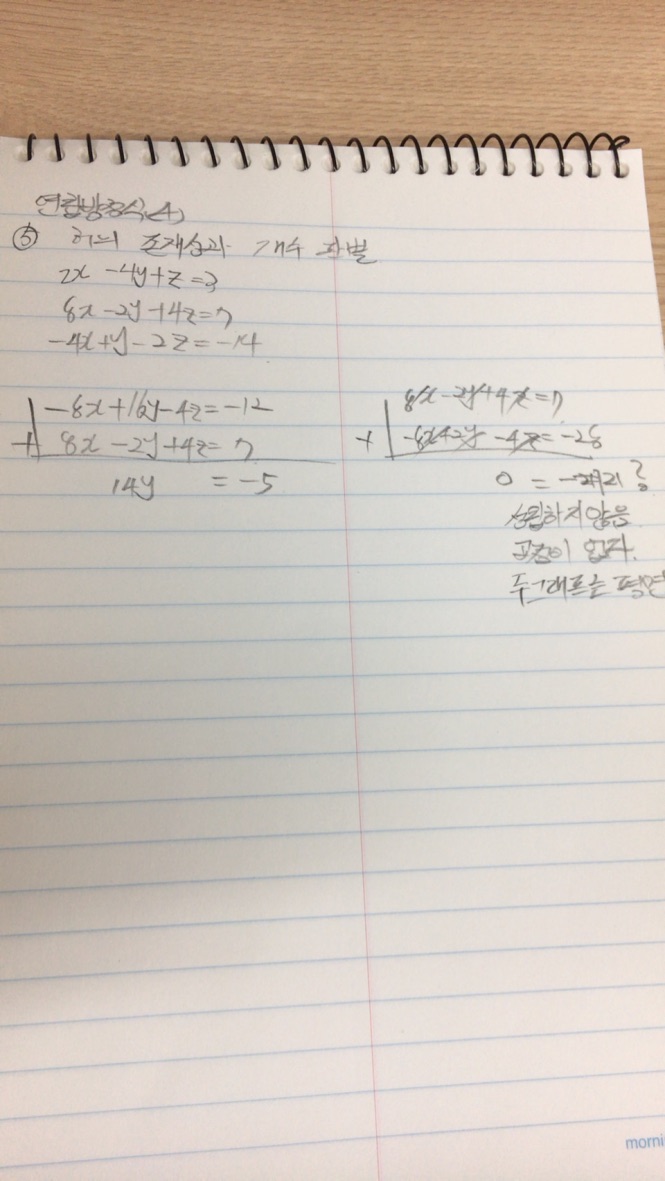 연립방정식(4)
⑤ 해의 존재성과 개수 판별
2x -4y+z=3
8x-2y+4z=7
-4x+y-2z=-14
-8x+16y-4z=-12
+ 8x-2y+4z=7
14y = -5
8x-2y+4z=7
+ -8x+2y-4z=-28
0 =
성립하지 않음
이 없다.
두 그래프는 평면
morni